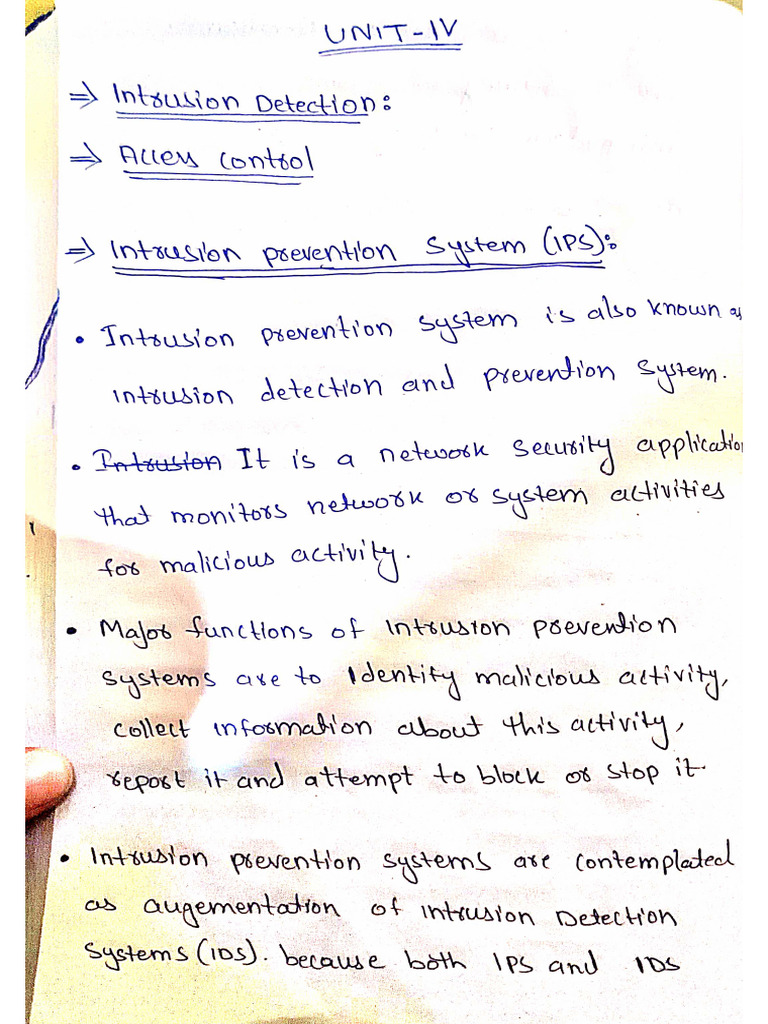 UNIT-IV
⇒ Intrusion Detection:
⇒ Access control
⇒ Intrusion prevention system (IPS):
• Intrusion prevention system is also known as
intrusion detection and prevention system.
• Intrusion It is a network security application
that monitors network or system activities
for malicious activity.
• Major functions of intrusion prevention
systems are to identify malicious activity,
collect information about this activity,
report it and attempt to block or stop it.
• Intrusion prevention systems are contemplated
as augementation of Intrusion Detection
Systems (IDS). because both IPS and IDS